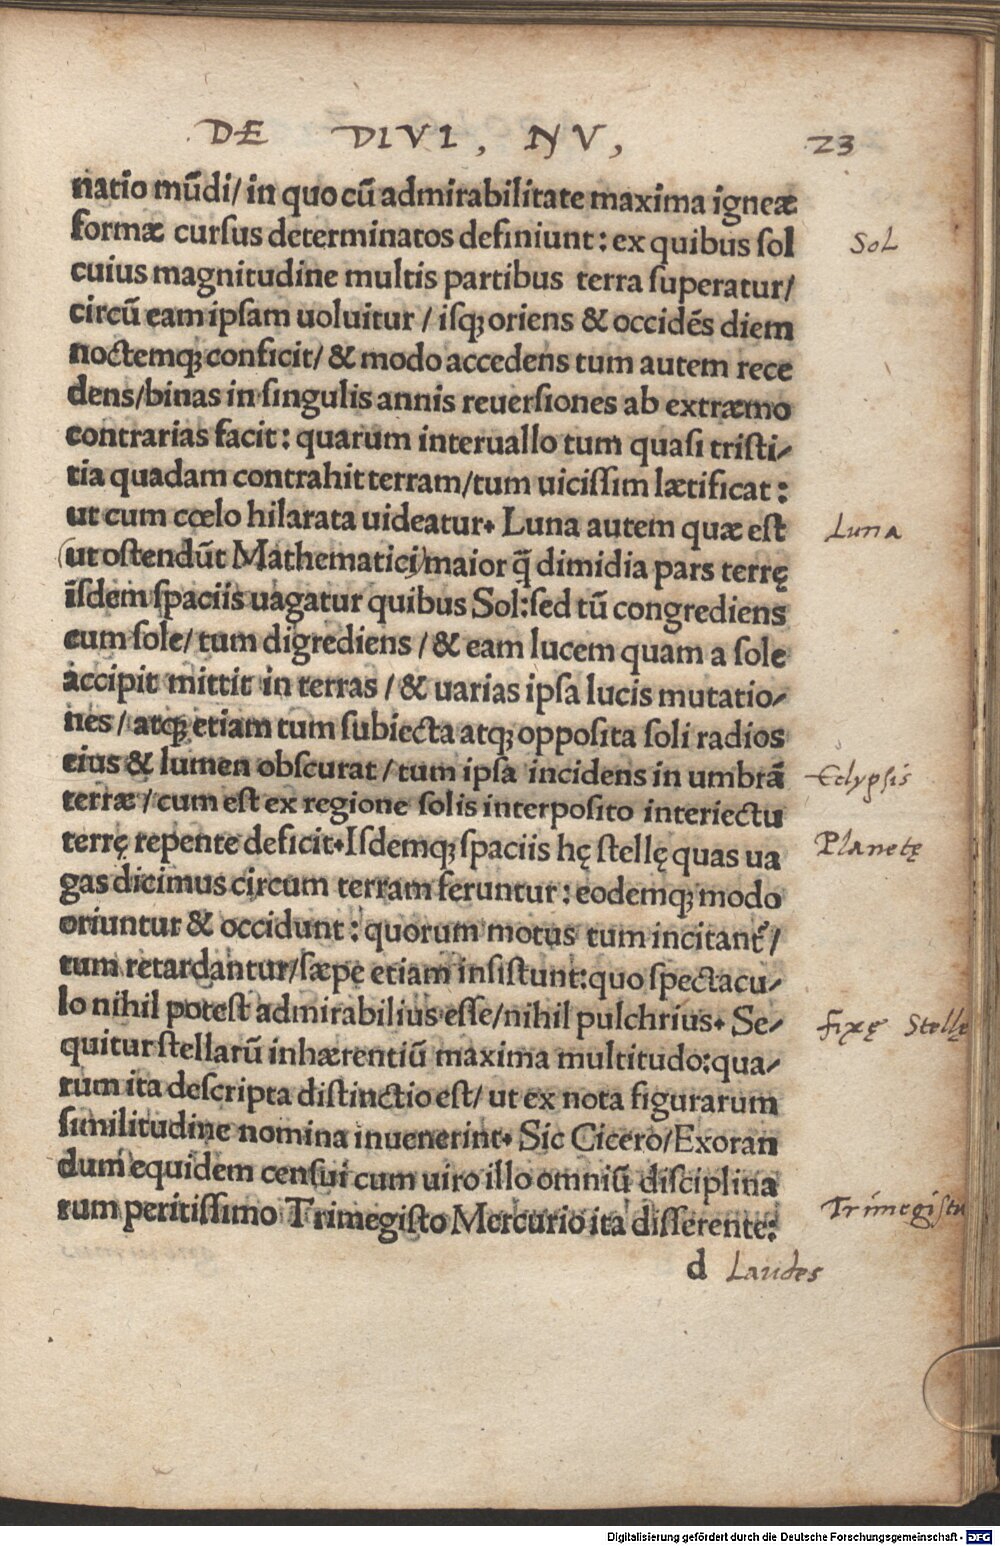 DE DIVI, NV, 23
natio mũdi/ in quo cũ admirabilitate maxima igneæ
formæ cursus determinatos definiunt: ex quibus sol
Sol
cuius magnitudine multis partibus terra superatur/
circũ eam ipsam uoluitur / isq; oriens & occidẽs diem
noctemq; conficit/ & modo accedens tum autem rece
dens/binas in singulis annis reuersiones ab extræmo
contrarias facit: quarum interuallo tum quasi tristi-
tia quadam contrahit terram/tum uicissim lætificat:
ut cum cœlo hilarata uideatur. Luna autem quæ est
Luna
(ut ostendũt Mathematici) maior q̃ dimidia pars terrę
ĩsdem spaciis uagatur quibus Sol: sed tũ congrediens
cum sole/ tum digrediens / & eam lucem quam a sole
accipit mittit in terras / & uarias ipsa lucis mutatio-
nes / atq; etiam tum subiecta atq; opposita soli radios
eius & lumen obscurat / tum ipsa incidens in umbrã
Eclypsis
terræ / cum est ex regione solis interposito interiectu
terrę repente deficit. Isdemq; spaciis hę stellę quas ua
Planetę
gas dicimus circum terram feruntur: eodemq; modo
oriuntur & occidunt: quorum motus tum incitant᷑ /
tum retardantur/sæpe etiam insistunt: quo spectacu-
lo nihil potest admirabilius esse/nihil pulchrius. Se-
fixę Stellę
quitur stellarũ inhærentiũ maxima multitudo: qua-
rum ita descripta distinctio est/ ut ex nota figurarum
similitudine nomina inuenerint. Sic Cicero/Exoran
dum equidem censui cum uiro illo omniũ disciplina
rum peritissimo Trimegisto Mercurio ita disserente:
Trimegistu
d Laudes
Digitalisierung gefördert durch die Deutsche Forschungsgemeinschaft - DFG